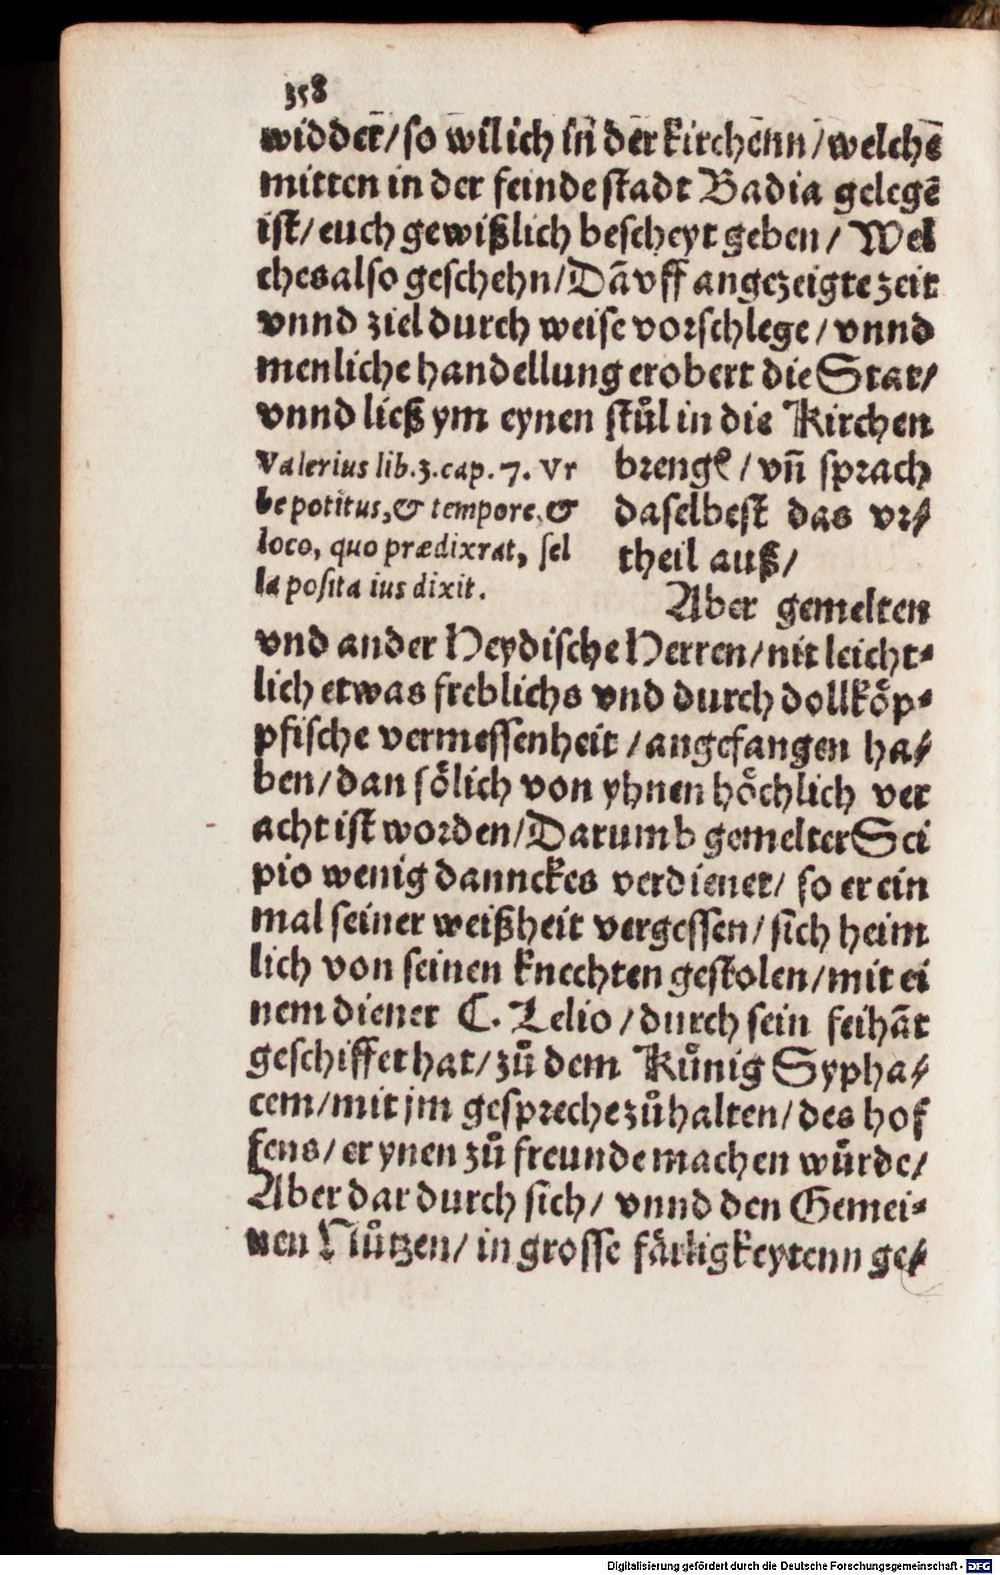 358
widder̄/so wil ich in der kirchenn/welchē
mitten in der feinde stadt Badia gelegē
ist/euch gewißlich bescheyt geben/ Wel
ches also geschehn/Dāvff angezeigte zeit
vnnd ziel durch weise vorschlege/vnnd
menliche handellung erobert die Stat/
vnnd ließ ym eynen stůl in die Kirchen
brengē/vñ sprach
daselbest das vr⸗
theil auß/
Valerius lib.3.cap.7. Vr
be potitus,& tempore,&
loco, quo prædixrat, sel
la posita ius dixit.
Aber gemelten
vnd ander Heydische Herren/nit leicht⸗
lich etwas freblichs vnd durch dollkoͤp⸗
pfische vermessenheit/angefangen ha⸗
ben/dan soͤlich von yhnen hoͤchlich ver
acht ist worden/Darumb gemelter Sci
pio wenig dannckes verdienet/ so er ein
mal seiner weißheit vergessen/sich heim
lich von seinen knechten gestolen/mit ei
nem diener C. Lelio/durch sein feihāt
geschiffet hat/zů dem Kuͤnig Sypha⸗
cem/mit jm gespreche zůhalten/des hof
fens/er ynen zů freunde machen wuͤrde/
Aber dar durch sich/ vnnd den Gemei⸗
nen Nuͤtzen/in grosse faͤrligkeytenn ge⸗
Digitalisierung gefördert durch die Deutsche Forschungsgemeinschaft - DFG